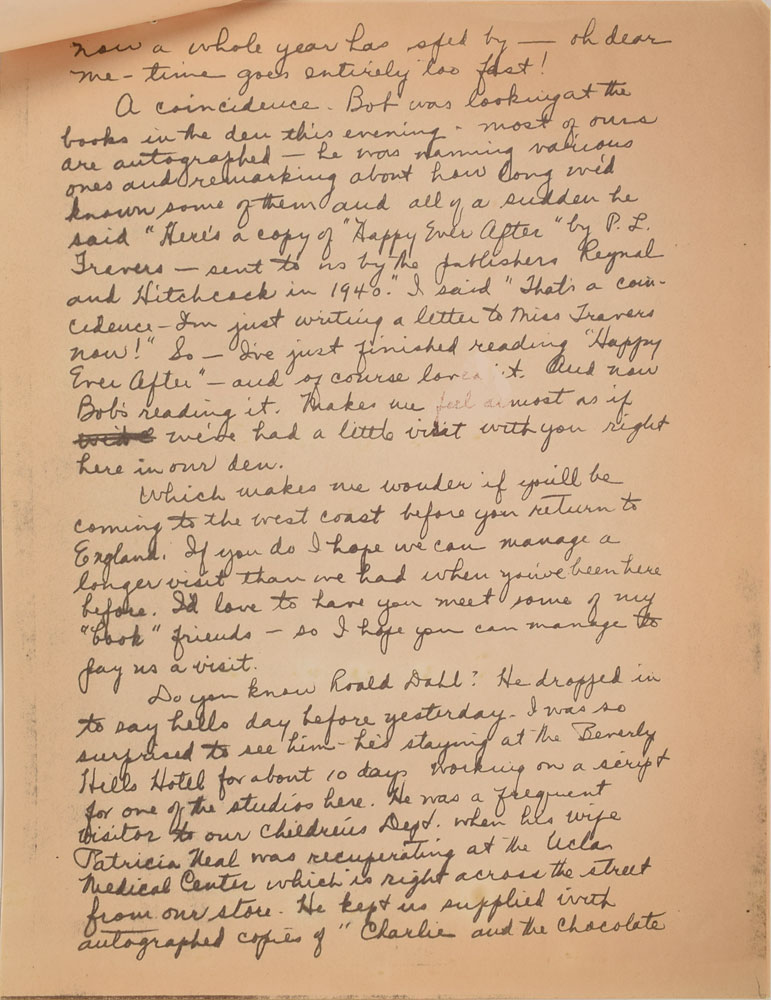 now a whole year has sped by — oh dear
me - time goes entirely too fast!
A coincidence. Bob was looking at the
books in the den this evening - most of ours
are autographed — he was naming various
ones and remarking about how long we'd
known some of them and all of a sudden he
said "Here's a copy of "Happy Ever After" by P. L.
Travers — sent to us by the publishers Reynal
and Hitchcock in 1940." I said "That's a coin-
cidence - I'm just writing a letter to Miss Travers
now!" So — I've just finished reading "Happy
Ever After" — and of course loved it. And now
Bob's reading it. Makes me feel almost as if
we've had a little visit with you right
here in our den.
Which makes me wonder if you'll be
coming to the west coast before you return to
England. If you do I hope we can manage a
longer visit than we had when you've been here
before. I'd love to have you meet some of my
"book" friends — so I hope you can manage to
pay us a visit.
Do you know Roald Dahl? He dropped in
to say hello day before yesterday. I was so
surprised to see him - he's staying at the Beverly
Hills Hotel for about 10 days working on a script
for one of the studios here. He was a frequent
visitor to our Children's Dept. when his wife
Patricia Neal was recuperating at the Ucla
Medical Center which is right across the street
from our store. He kept us supplied with
autographed copies of "Charlie and the Chocolate